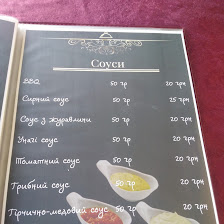 Соуси
BBQ 50 гр 20 грн
Сирний соус 50 гр 25 грн
Соус з журавлини 50 гр 20 грн
Унагі соус 50 гр 20 грн
Томатний соус 50 гр 20 грн
Грибний соус 50 гр 20 грн
Гірчично-медовий соус 50 гр 20 грн